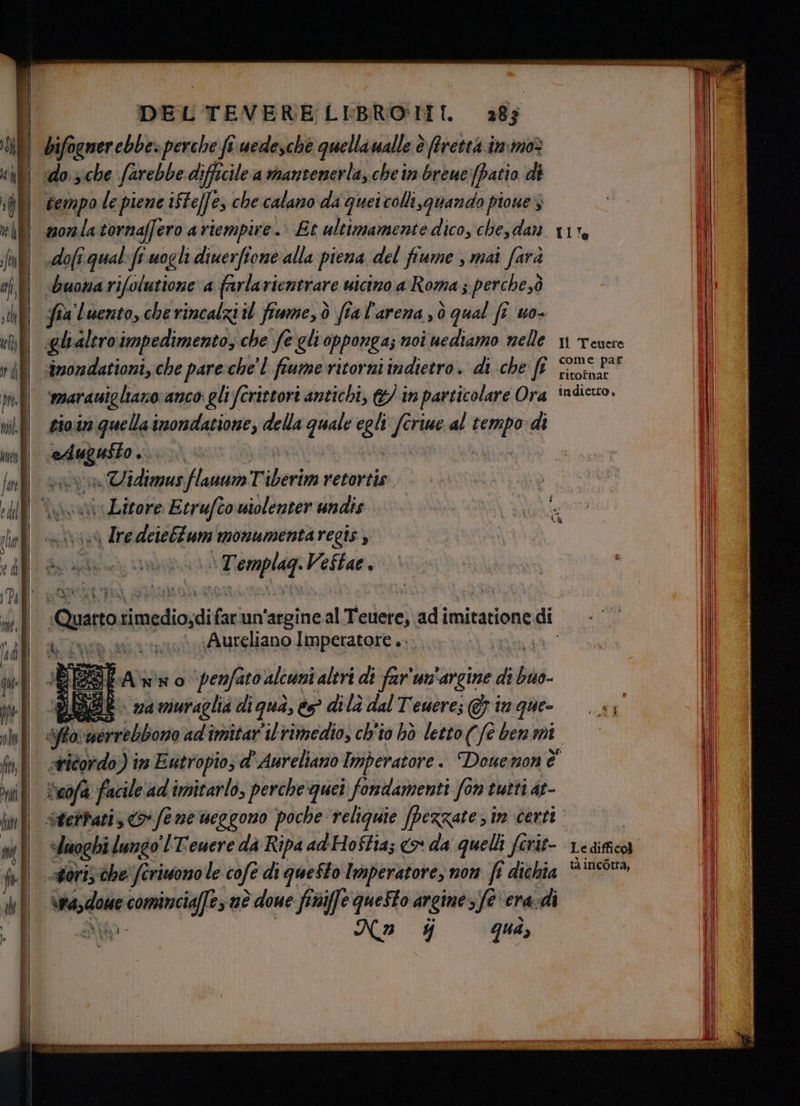 DEL TEVERE LIBRO III. 283
bisognerebbe. perche si uede, che quella ualle è stretta in mo-
do, che sarebbe difficile a mantenerla, che in breue spatio di
tempo le piene istesse, che calano da quei colli, quando pioue,
non la tornassero a riempire. Et ultimamente dico, che, dan
dosi qual si uogli diuersione alla piena del fiume, mai sarà
buona risolutione a farla rientrare uicino a Roma; perche, ò
sia'l uento, che rincalzi il fiume, ò sia l'arena, ò qual si uo-
gli altro impedimento, che se gli opponga; noi uediamo nelle
inondationi, che pare che'l fiume ritorni indietro. di che si
marauigliano anco gli scrittori antichi, & in particolare Ora
tio in quella inondatione, della quale egli scriue al tempo di
Augusto.
Il Teuere
come par
ritornar
indietro.
Vidimus flauum Tiberim retortis
Litore Etrusco uiolenter undis
Ire deiectum monumenta regis,
Templaq. Vestae.
Quarto rimedio, di far un'argine al Teuere, ad imitatione di
Aureliano Imperatore.
HAnno pensato alcuni altri di far'un'argine di buo-
na muraglia di quà, & di là dal Teuere; & in que-
sto uerrebbono ad imitar'il rimedio, ch'io hò letto (se ben mi
ricordo) in Eutropio, d'Aureliano Imperatore. Doue non è
cosa facile ad imitarlo, perche quei fondamenti son tutti at-
terrati, & se ne ueggono poche reliquie spezzate, in certi
luoghi lungo'l Teuere da Ripa ad Hostia; & da quelli scrit-
tori, che scriuono le cose di questo Imperatore, non si dichia
ra, doue cominciasse, nè doue finisse questo argine, se era di
Le difficol
tà incôtra,
Nn ij quà,